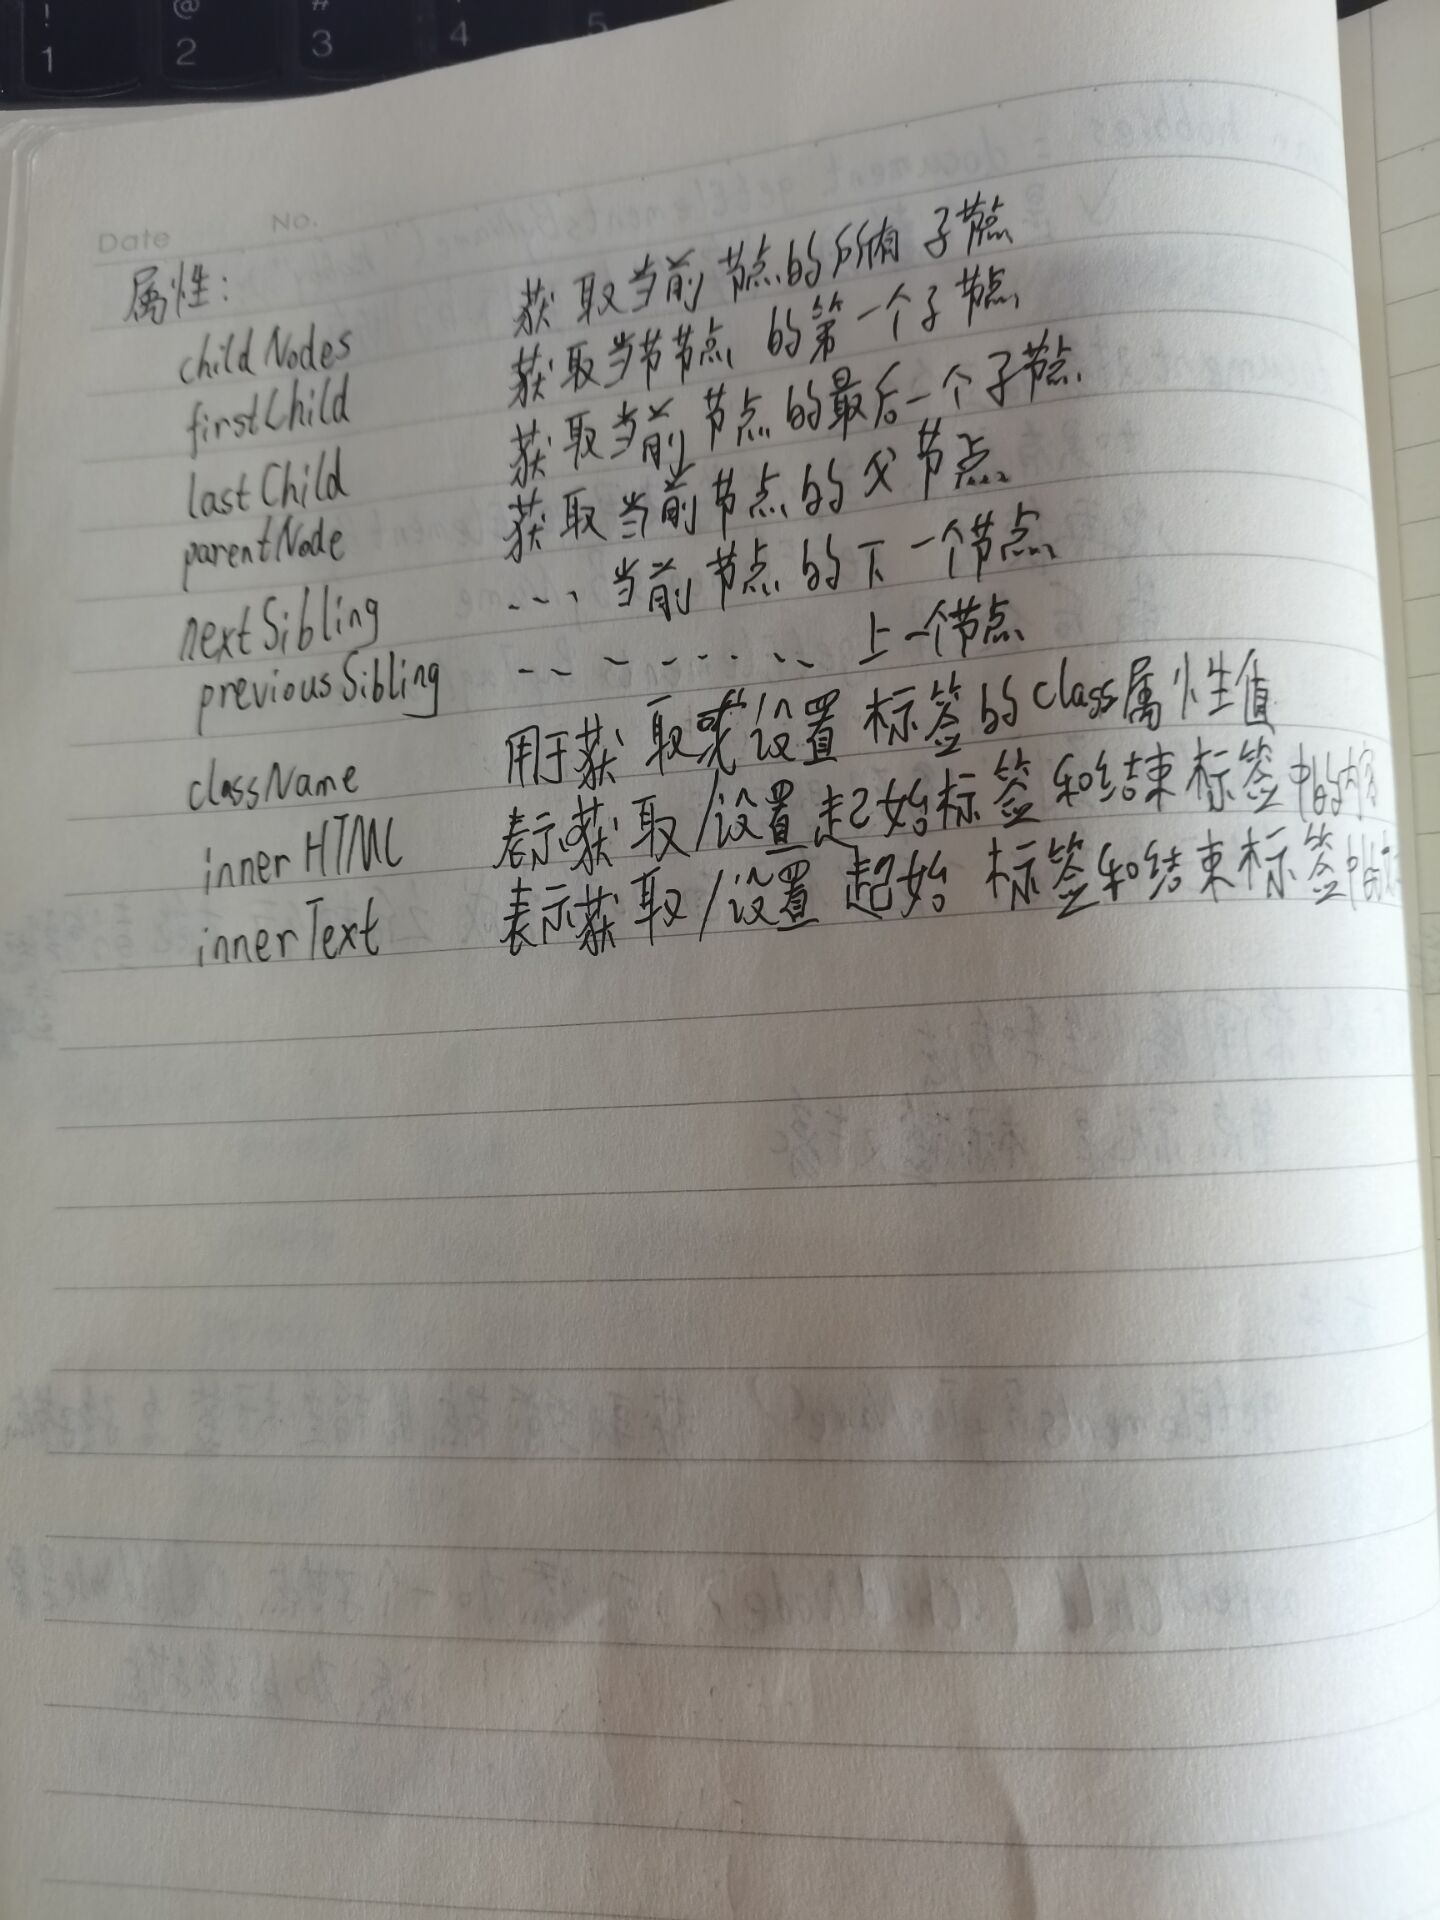 ! @ #
1 2 3 4 5
Date No.
属性：
childNodes 获取当前节点的所有子节点
firstChild 获取当节节点的第一个子节点
lastChild 获取当前节点的最后一个子节点
parentNode 获取当前节点的父节点
nextSibling ...当前节点的下一个节点
previousSibling ........ 上一个节点
className 用于获取或设置标签的class属性值
innerHTML 表示获取/设置起始标签和结束标签中的内容
innerText 表示获取/设置起始标签和结束标签中的文